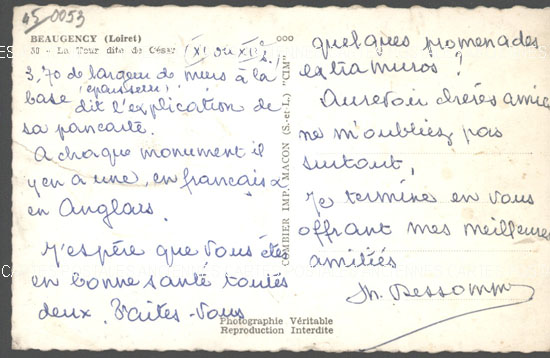 45 0053
BEAUGENCY (Loiret)
30 - La Tour dite de César (XI ou XIIe s.)
3,70 de largeur de murs à la
(épaisseur)
base dit l'explication de
sa pancarte.
A chaque monument il
y en a une, en français &
en Anglais.
J'espère que vous êtes
en bonne santé toutes
deux. Faites-vous
COMBIER IMP. MACON (S.-et-L.) "CIM"
quelques promenades
extramuros ?
Aurevoir chères amies
ne m'oubliez pas
surtout,
Je termine en vous
offrant mes meilleures
amitiés
Photographie Véritable
Reproduction Interdite